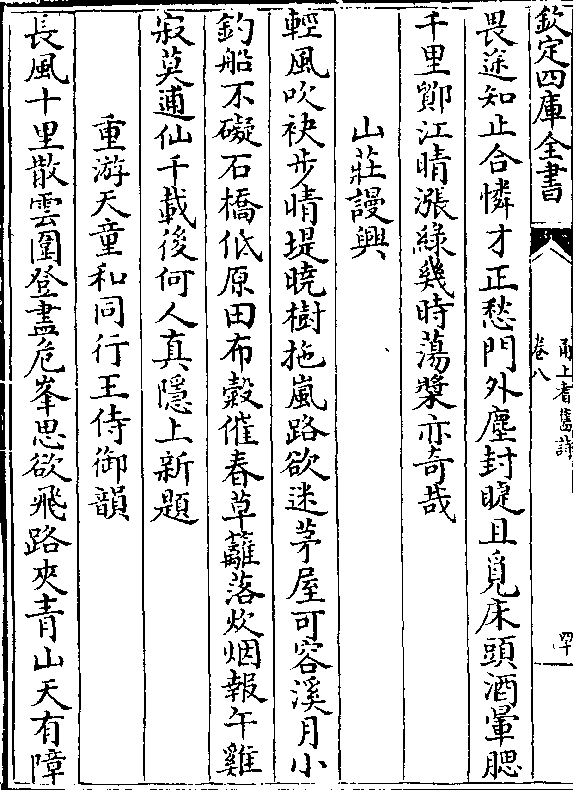 欽定四庫全書
甬上耆舊詩
卷八
四十
畏途知止合憐才正愁門外塵封睫且覓床頭酒暈腮
千里鄞江晴漲綠幾時蕩槳亦奇哉
山莊謾興
輕風吹袂步晴堤曉樹拖嵐路欲迷茅屋可容溪月小
釣船不礙石橋低原田布穀催春草籬落炊烟報午雞
寂莫逋仙千載後何人真隱上新題
重游天童和同行王侍御韻
長風十里散雲圍登盡危峯思欲飛路夾青山天有障